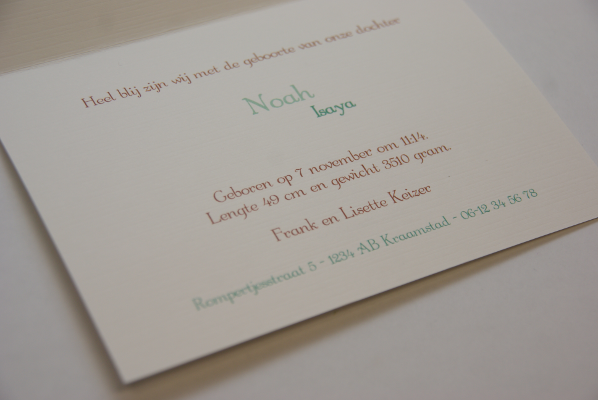 Heel blij zijn wij met de geboorte van onze dochter
Noah
Isaya
Geboren op 7 november om 11:14.
Lengte 49 cm en gewicht 3510 gram.
Frank en Lisette Keizer
Rompertjesstraat 5 - 1234 AB Kraamstad - 06-12 34 56 78